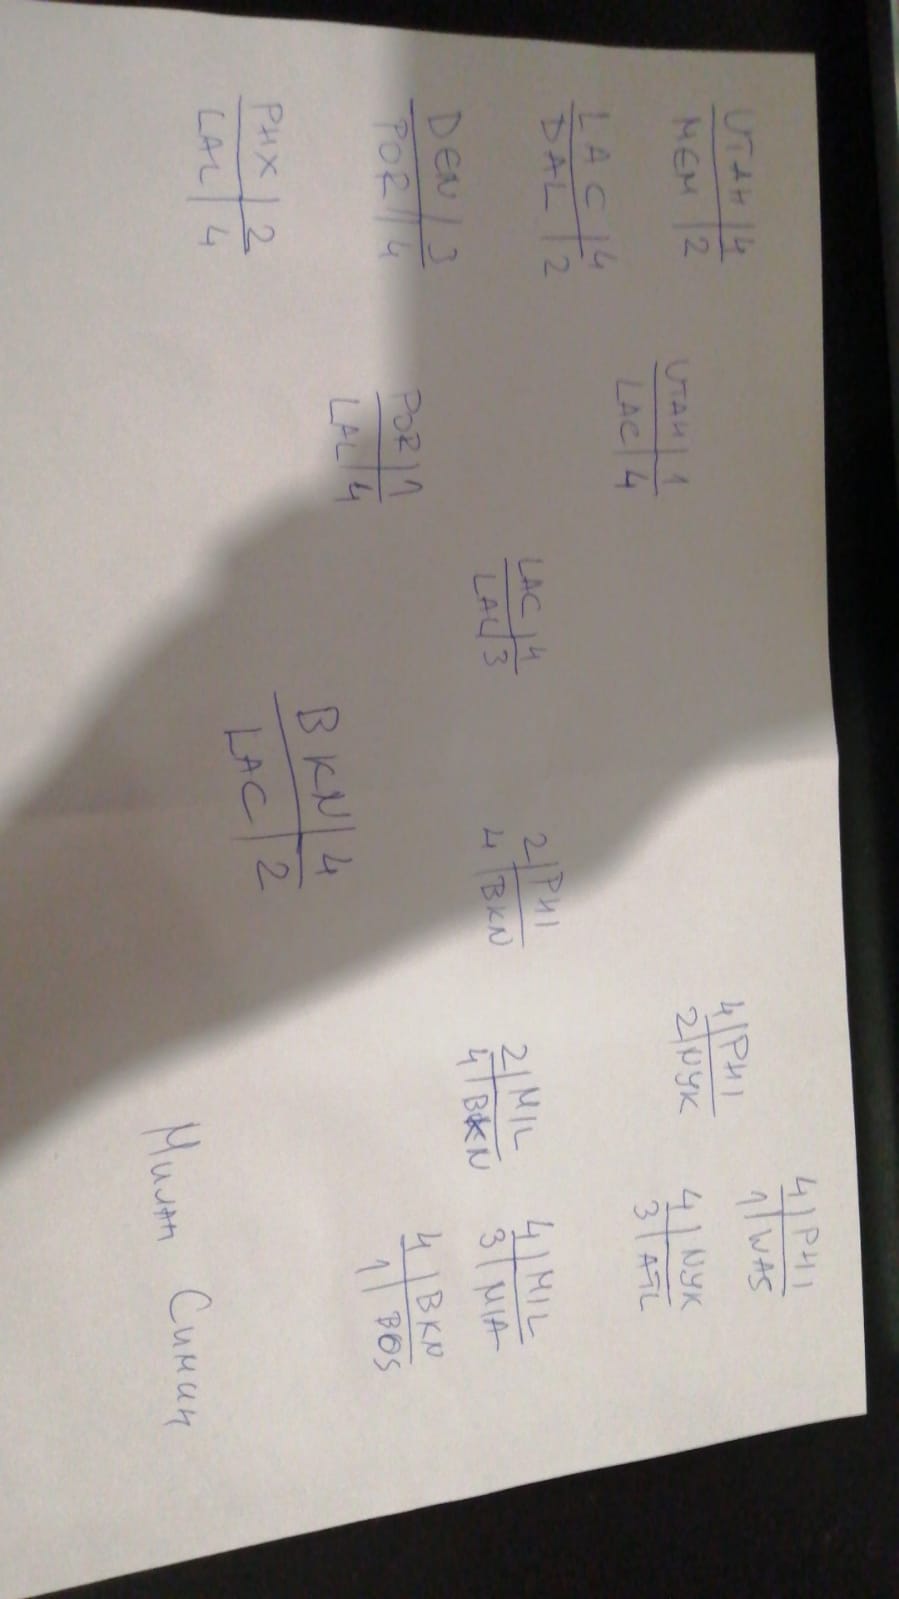 UTAH 4
MEM 2
LAC 4
DAL 2
DEN 3
POR 4
PHX 2
LAL 4
UTAH 1
LAC 4
POR 1
LAL 4
LAC 4
LAL 3
BKN 4
LAC 2
2 PHI
4 BKN
4 PHI
2 NYK
2 MIL
4 BKN
4 PHI
1 WAS
4 NYK
3 ATL
4 MIL
3 MIA
4 BKN
1 BOS
Милан Симин